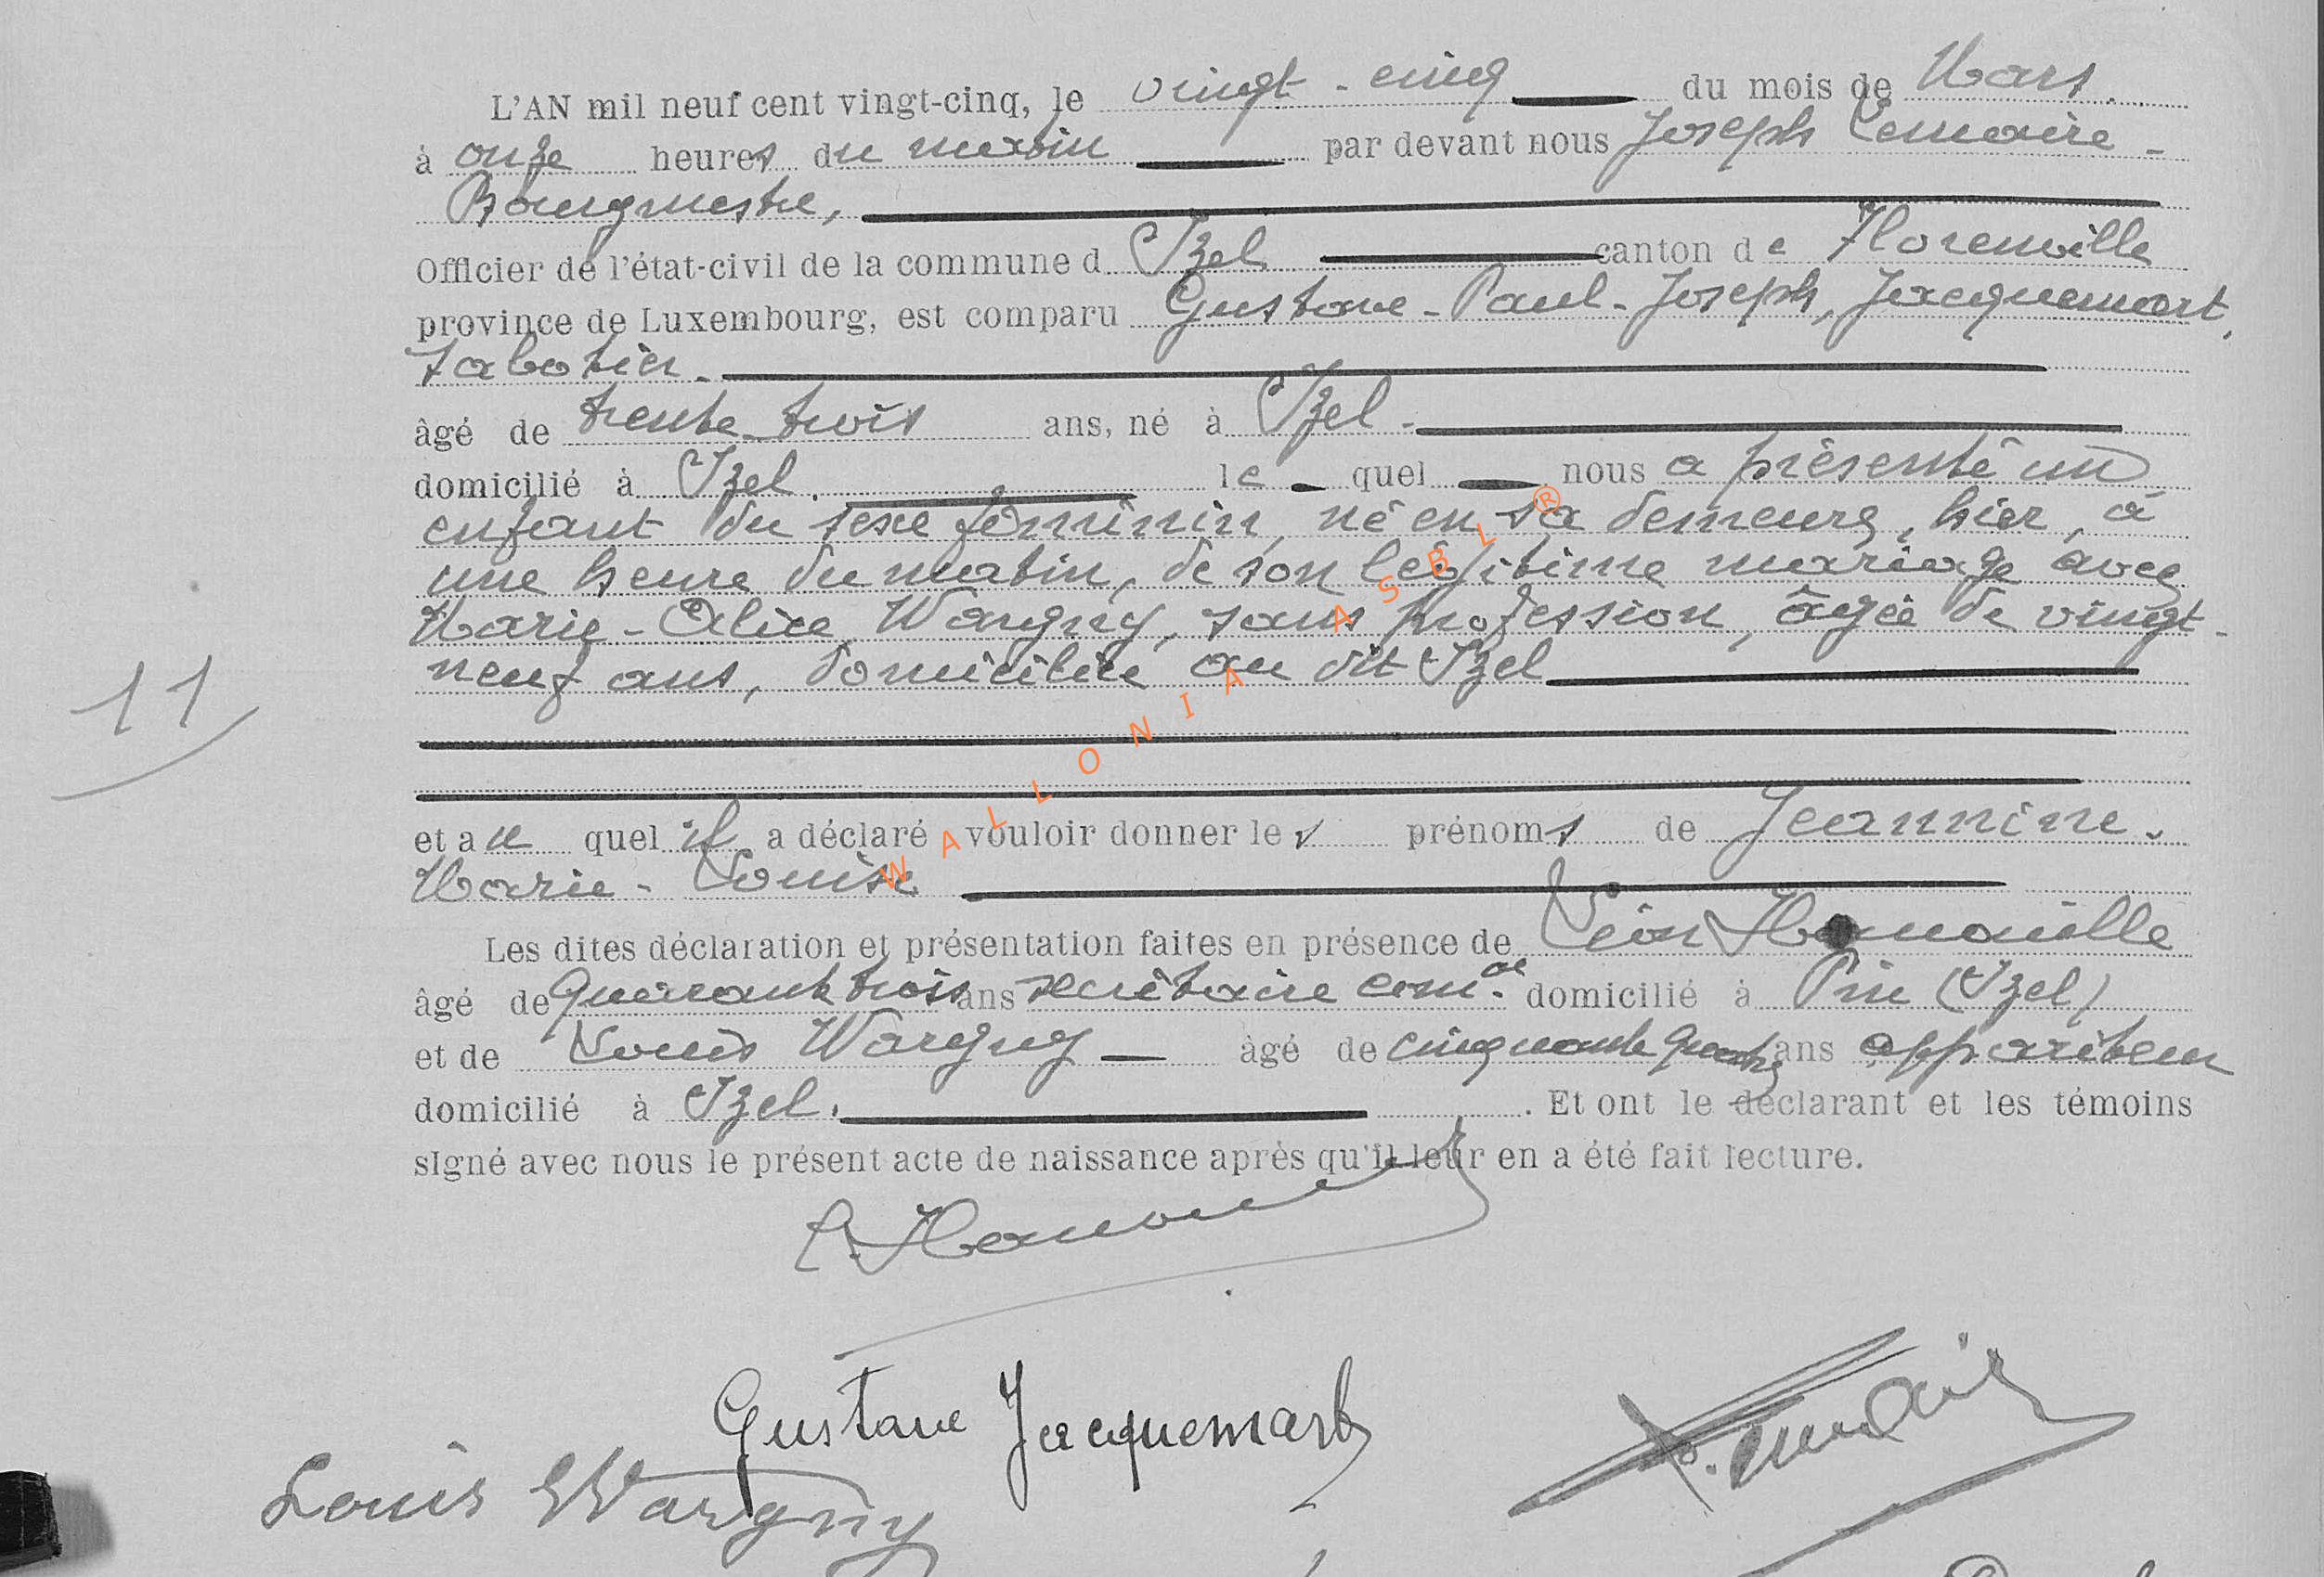 L'AN mil neuf cent vingt-cinq, le vingt-cinq du mois de Mars.
à onze heures du matin par devant nous Joseph Lemaire -
Bourgmestre,
Officier de l'état-civil de la commune d Izel canton de Florenville
province de Luxembourg, est comparu Gustave-Paul-Joseph, Jacquemart,
sabotier.
âgé de trente-trois ans, né à Izel.
domicilié à Izel. le quel nous a présenté un
enfant du sexe féminin, né en sa demeure, hier, à
une heure du matin, de son légitime mariage avec
Marie-Alice Wargny, sans profession, âgée de vingt-
neuf ans, domiciliée au dit Izel
11
et au quel il a déclaré vouloir donner les prénoms de Jeannine-
Marie-Louise
Les dites déclaration et présentation faites en présence de Léon
âgé de quarante trois ans secrétaire com.al domicilié à Pin (Izel)
et de Louis Wargny âgé de cinquante quatre ans appariteur
domicilié à Izel. Et ont le déclarant et les témoins
signé avec nous le présent acte de naissance après qu'il leur en a été fait lecture.
Gustave Jacquemart
J. Lemaire
Louis Wargny
WALLONIA ASBL ®